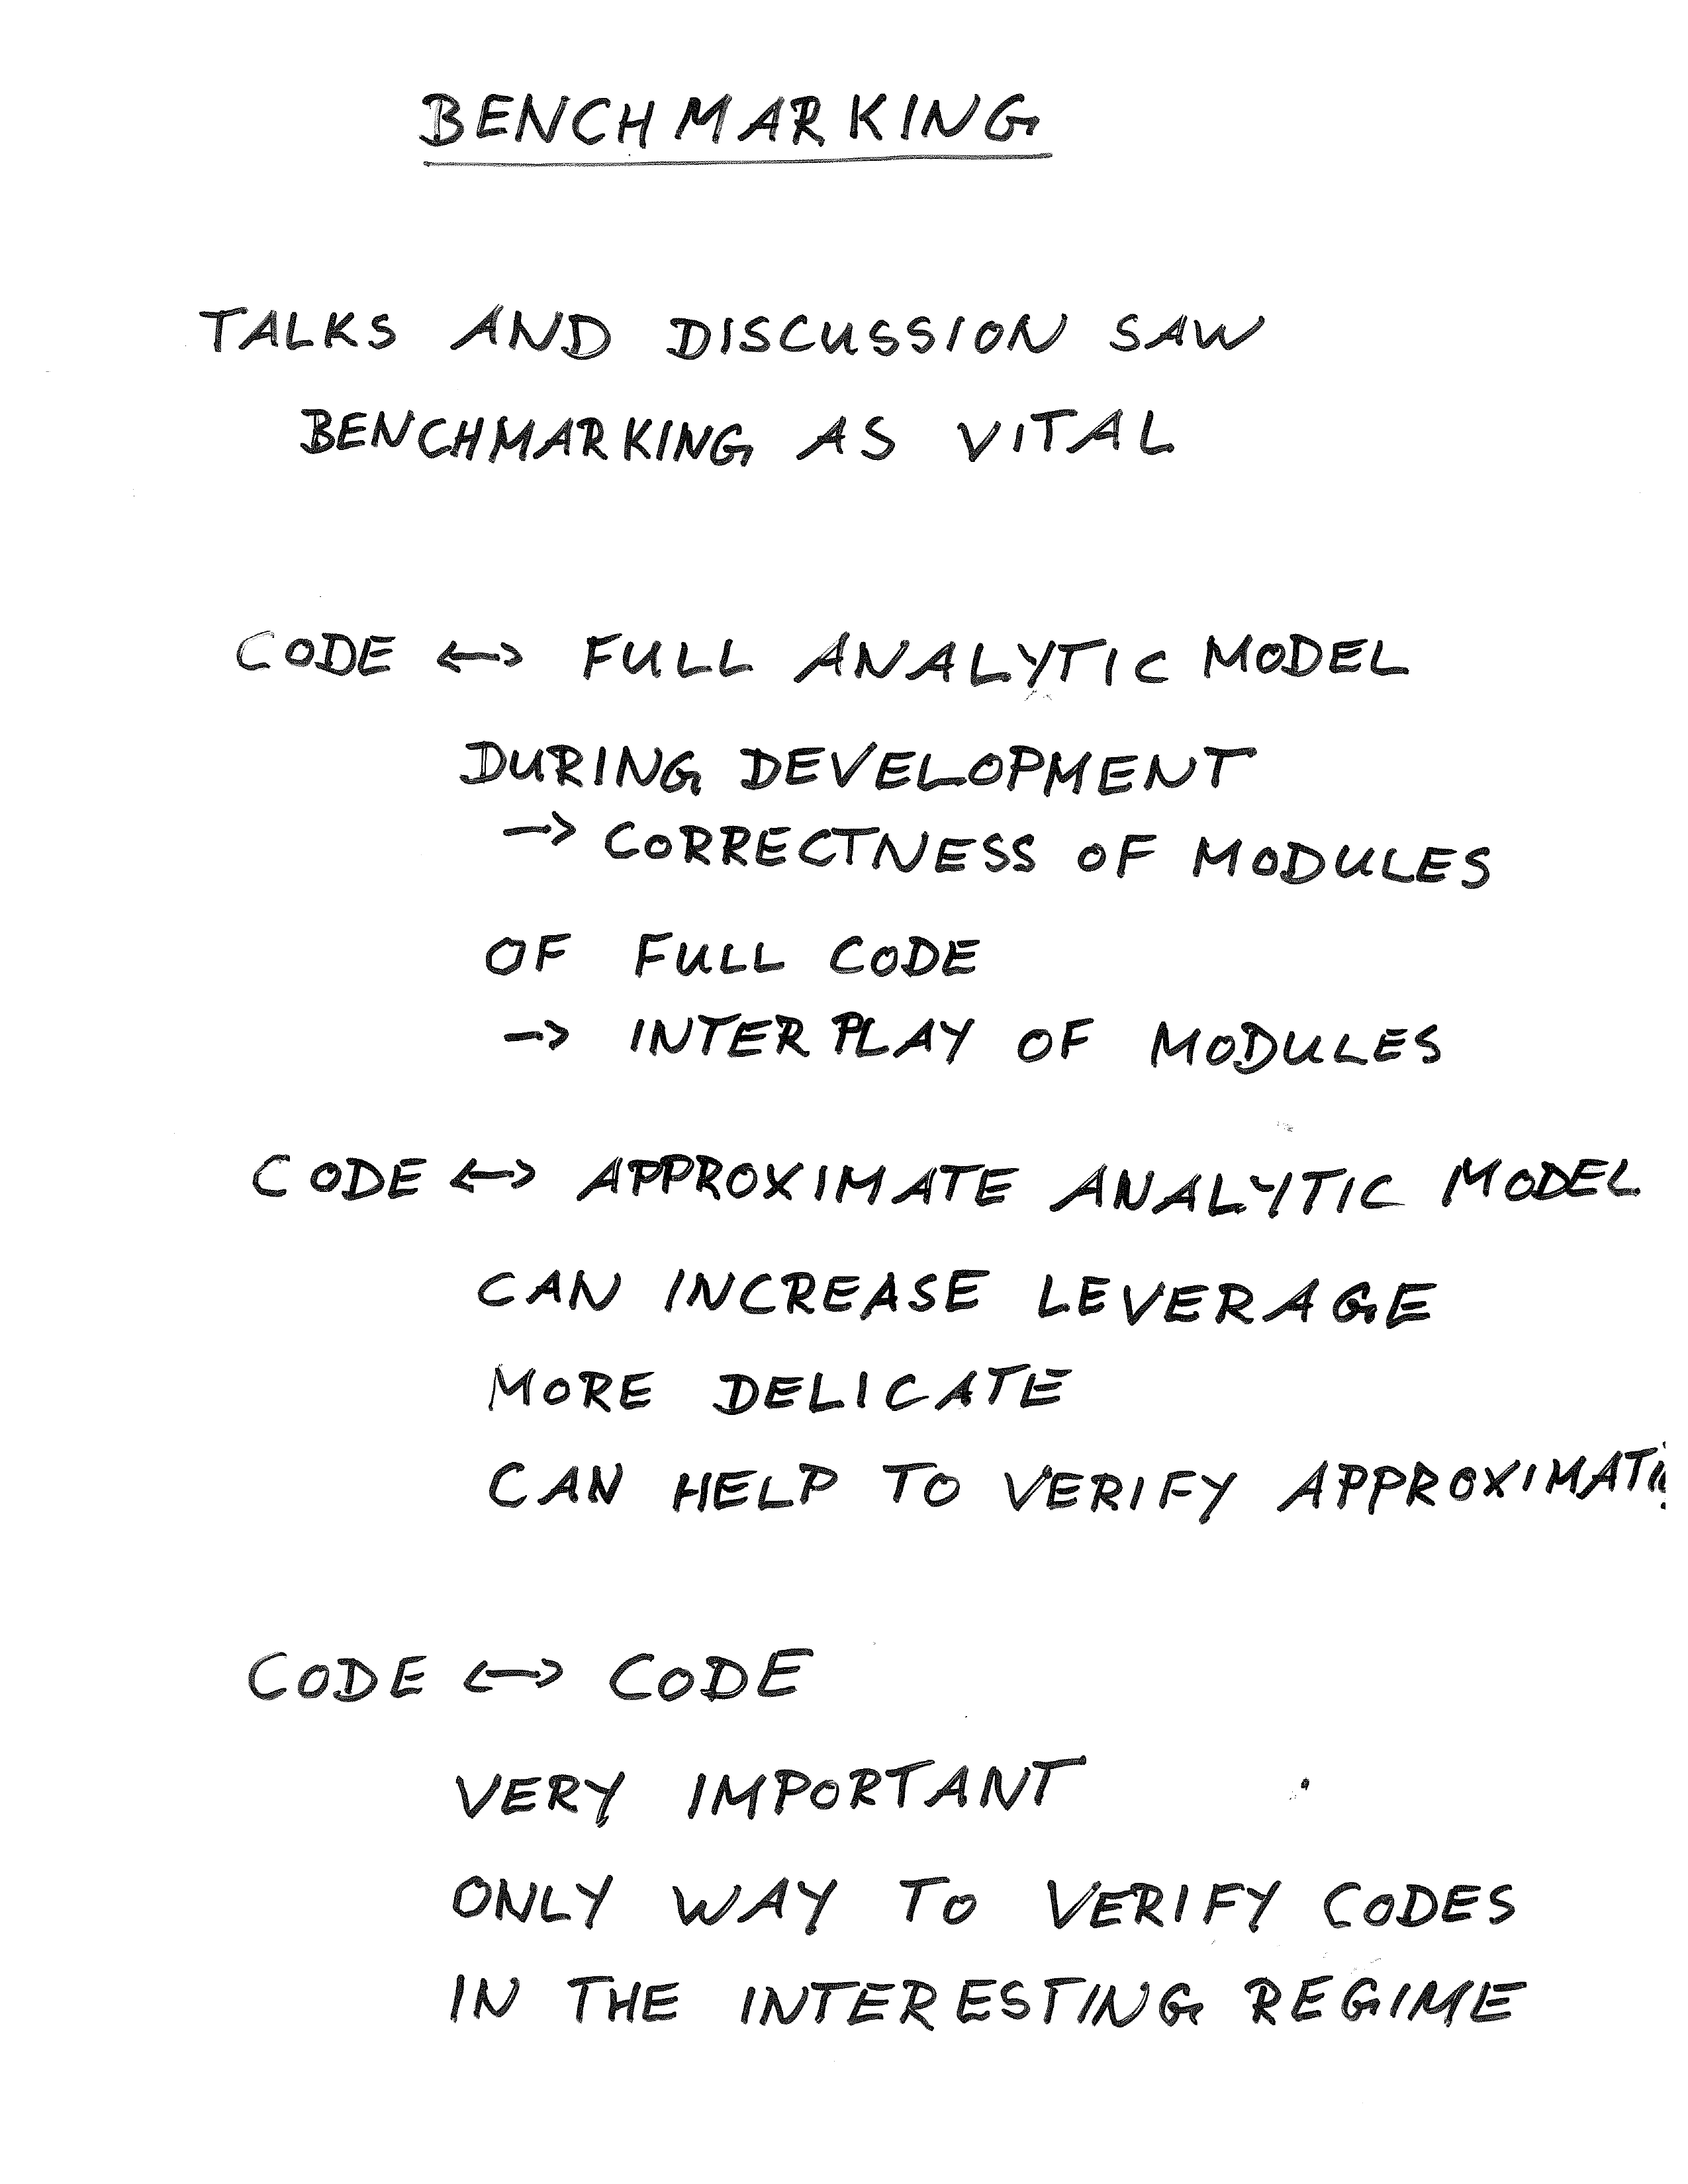 BENCHMARKING
TALKS AND DISCUSSION SAW
BENCHMARKING AS VITAL
CODE <-> FULL ANALYTIC MODEL
DURING DEVELOPMENT
-> CORRECTNESS OF MODULES
OF FULL CODE
-> INTERPLAY OF MODULES
CODE <-> APPROXIMATE ANALYTIC MODEL
CAN INCREASE LEVERAGE
MORE DELICATE
CAN HELP TO VERIFY
CODE <-> CODE
VERY IMPORTANT
ONLY WAY TO VERIFY CODES
IN THE INTERESTING REGIME